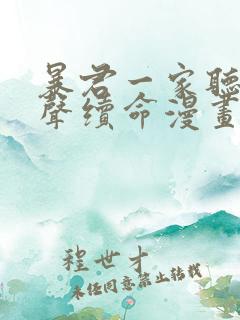 暴君一家聽
聲續命漫畫
程世才
未經同意禁止轉載